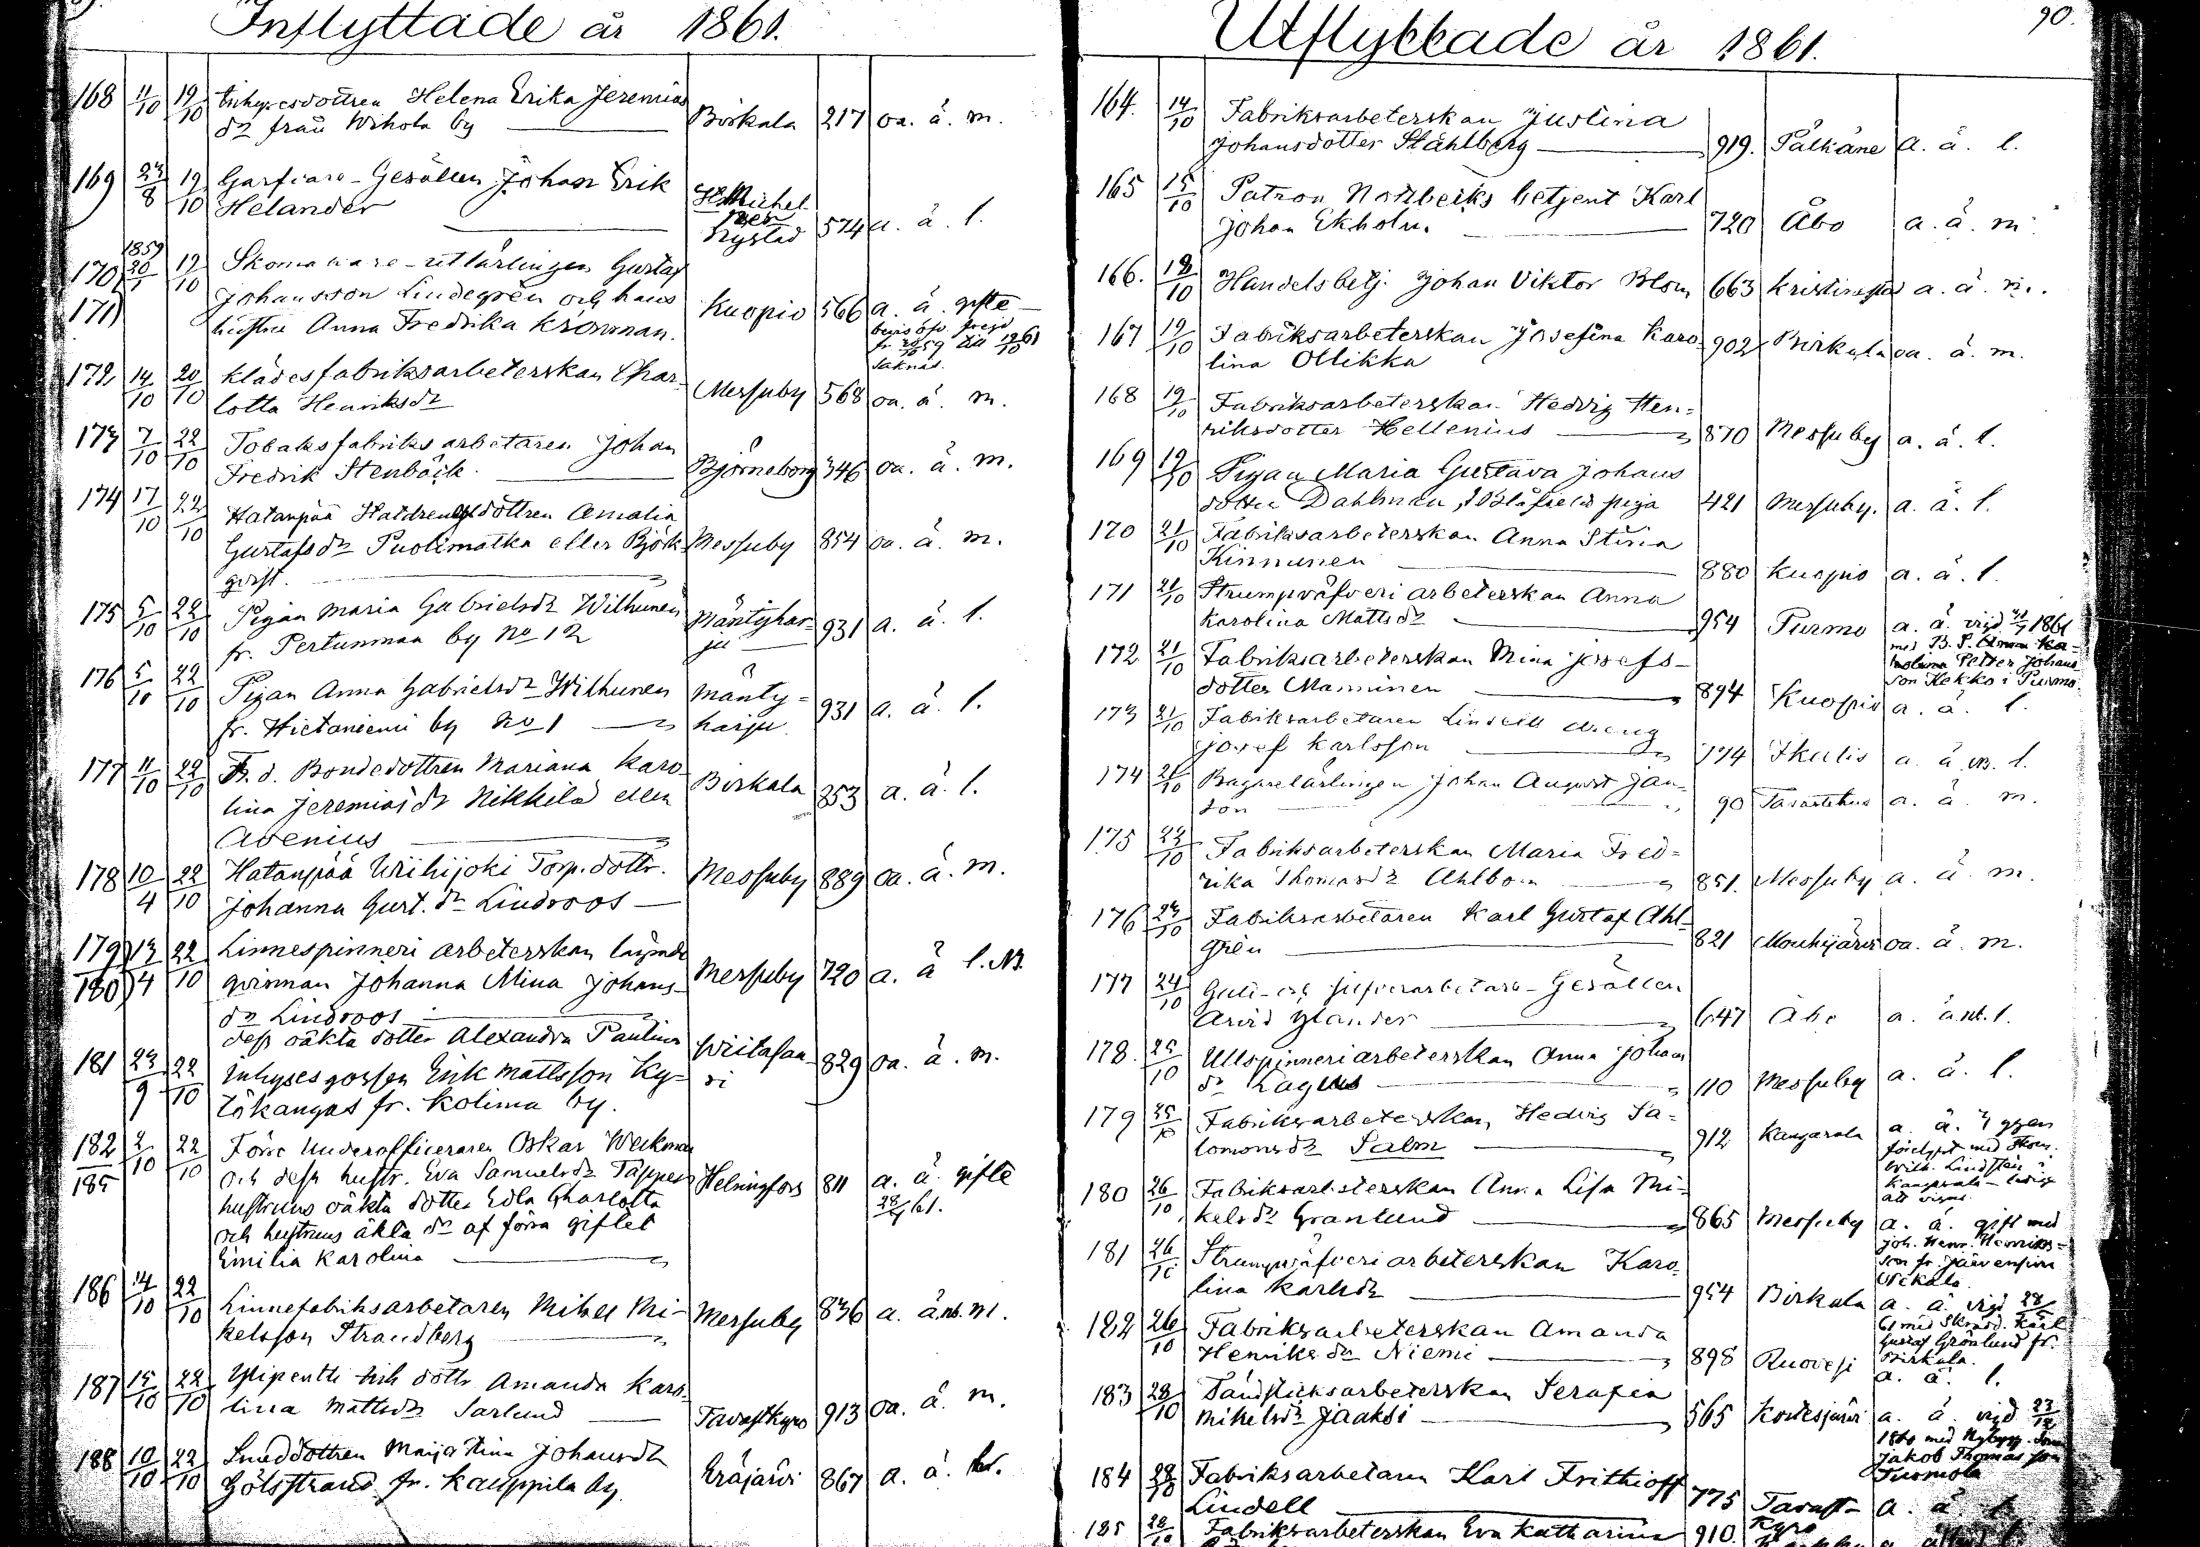 Inflyttade år 1861.
168 11/10 19/10 Inhysesdottren Helena Erika Jeremias
dr från Wihola by Birkala 217 oa. ä. m.
169 23/8 19/10 Garfvare-Gesällen Johan Erik
Helander Nystad 574 a. ä. l.
1859
170 20/9 19/10 Skomakare-utlärlingen Gustaf
171 Johansson Lindegrén och hans
hustru Anna Fredrika Krowman. Kuopio 566 a. ä. gifte
saknas.
172 14/10 20/10 klädesfabriksarbeterskan Char-
lotta Henriksdr Messuby 568 oa. ä. m.
173 7/10 22/10 Tobaksfabriks arbetaren Johan
Fredrik Stenbäck. Björneborg 346 oa. ä. m.
174 17/10 22/10 Hatanpää dottren Amalia
Gustafsdr Puolimatka eller Björk-
qvist. Messuby 854 oa. ä. m.
175 5/10 22/10 Pigan Maria Gabrielsdr Wilhunen
fr. Pertunmaa by No 12 Mäntyhar-
ju 931 a. ä. l.
176 5/10 22/10 Pigan Anna Gabrielsdr Wilhunen
fr. Hietaniemi by No 1 Mänty-
harju 931 a. ä. l.
177 11/10 22/10 Fr. d. Bondedottren Mariana Karo-
lina Jeremiasdr Nikkilä eller
Avenius Birkala 853 a. ä. l.
178 10/4 22/10 Hatanpää Wiihijoki Torp. dottr.
Johanna Gust. dr Lindroos Messuby 889 oa. ä. m.
179 13/4 22/10 Linnespinneri arbeterskan
180 qvinnan Johanna Mina Johans-
dr Lindroos Messuby 720 a. ä l. NB.
dess oäkta dotter Alexandra Paulina
181 23/9 22/10 Inhyses gossen Erik Mattsson Ky-
tökangas fr. Kolima by. Wiitasaa-
ri 829 oa. ä. m.
182 2/10 22/10 Förre Underofficeraren Oskar Weckman
185 och dess hustr. Eva Samuelsdr
hustruns oäkta dotter Edla Charlotta
och hustruns äkta dr af förra giftet
Emilia Karolina Helsingfors 811 a. ä. gifte
186 14/10 22/10 Linnefabriksarbetaren Mikel Mi-
kelsson Strandberg Messuby 836 a. ä. nb. m.
187 15/10 22/10 Ylipentti inh dottr Amanda Karo-
lina Mattsdr Sarlund Tavastkyro 913 oa. ä. m.
188 10/10 22/10 Smeddottren Maija Stina Johansdr
Götsstrand fr. Kauppila by. Eräjärvi 867 a. ä.
Utflyttade år 1861.
90.
164. 14/10 Fabriksarbeterskan Justina
Johansdotter Ståhlberg 919. Pälkäne a. ä. l.
165 15/10 Patron Nottbecks betjent Karl
Johan Ekholm. 720 Åbo a. ä. m.
166. 18/10 Handelsbetj. Johan Viktor Blom 663 Kristinestad a. ä. m.
167 19/10 Fabriksarbeterskan Josefina Karo-
lina Ollikka 902 Birkala oa. ä. m.
168 19/10 Fabriksarbeterskan Hedvig Hen-
riksdotter Hellenius 870 Messuby a. ä. l.
169 19/10 Pigan Maria Gustava Johans
dotter Dahlman, Blåfields piga 421 Messuby. a. ä. l.
170 21/10 Fabriksarbeterskan Anna Stina
Kinnunen 880 Kuopio a. ä. l.
171 21/10 Strumpväfveri arbeterskan Anna
Karolina Mattsdr 954 Purmo a. ä. vigd 1861
son Kekko i Purmo.
172 21/10 Fabriksarbeterskan Mina Josefs-
dotter Manninen 894 Kuopio a. ä. l.
173 21/10 Fabriksarbetaren Lindells dräng
Josef Karlsson 774 Ikalis a. ä. NB. l.
174 21/10 Bagarelärlingen Johan August Jan-
son 90 Tavastehus a. ä. m.
175 22/10 Fabriksarbeterskan Maria Fred-
rika Thomasdr Ahlbom 851. Messuby a. ä. m.
176 23/10 Fabriksarbetaren Karl Gustaf Ahl-
grén 821 Mouhijärvi oa. ä. m.
177 24/10 Guld- och silfverarbetare-Gesällen
Arvid Ylander 647 Åbo a. ä. nb. l.
178. 25/10 Ullspinneriarbeterskan Anna Johans
dr Lagus 110 Messuby a. ä. l.
179 25/10 Fabriksarbeterskan, Hedvig Sa-
lomonsdr Salm 912 Kangasala a. ä.
att vigas.
180 26/10 Fabriksarbeterskan Anna Lisa Mi-
kelsdr Granlund 865 Messuby a. ä. gift med
Joh. Henr. Henriks-
181 26/10 Strumpväfveriarbeterskan Karo-
lina Karlsdr 954 Birkala a. ä. vigd 28/
61 med Skrädd. Karl
Gustaf Grönlund fr.
Birkala.
182 26/10 Fabriksarbeterskan Amanda
Henriksdr Niemi 898 Ruovesi a. ä. l.
183 28/10 Tändsticksarbeterskan Serafia
Mikelsdr Jaaksi 565 Kortesjärvi a. ä. vigd 23/12
1860 med
Jakob Thomasson
Tuomola
184 28/10 Fabriksarbetaren Karl Frithioff
Lindell 775 Tavast-
kyro a. ä. l.
185 28/10 Fabriksarbeterskan Eva Katharina 910.